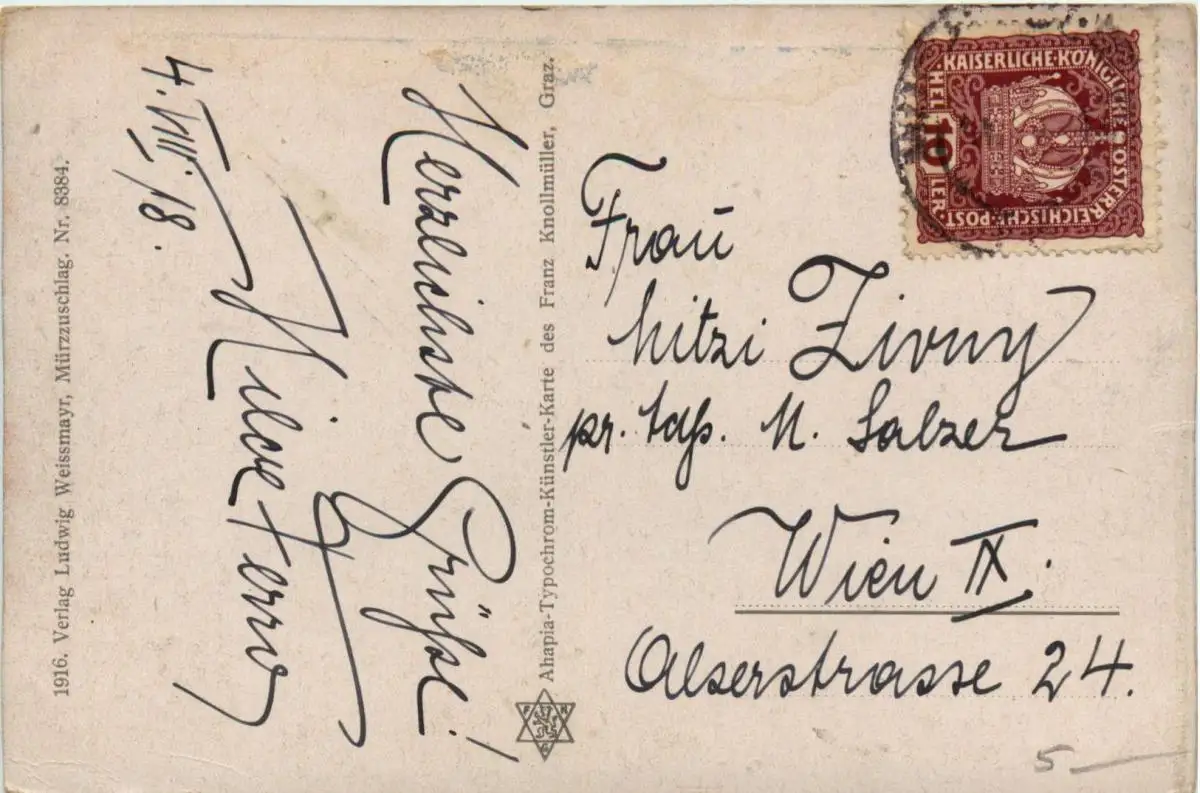 4. VIII. 18.
Herzlichste Grüße!
1916. Verlag Ludwig Weissmayr, Mürzzuschlag. Nr. 8384.
Ahapia-Typochrom-Künstler-Karte des Franz Knollmüller, Graz.
F K
G
KAISERLICHE·KÖNIGLICHE ÖSTERREICHISCHE·POST·
HEL 10 LER
Frau
Mitzi Zivny
pr. Adß. M. Salzer
Wien IX.
Alserstrasse 24.
5—